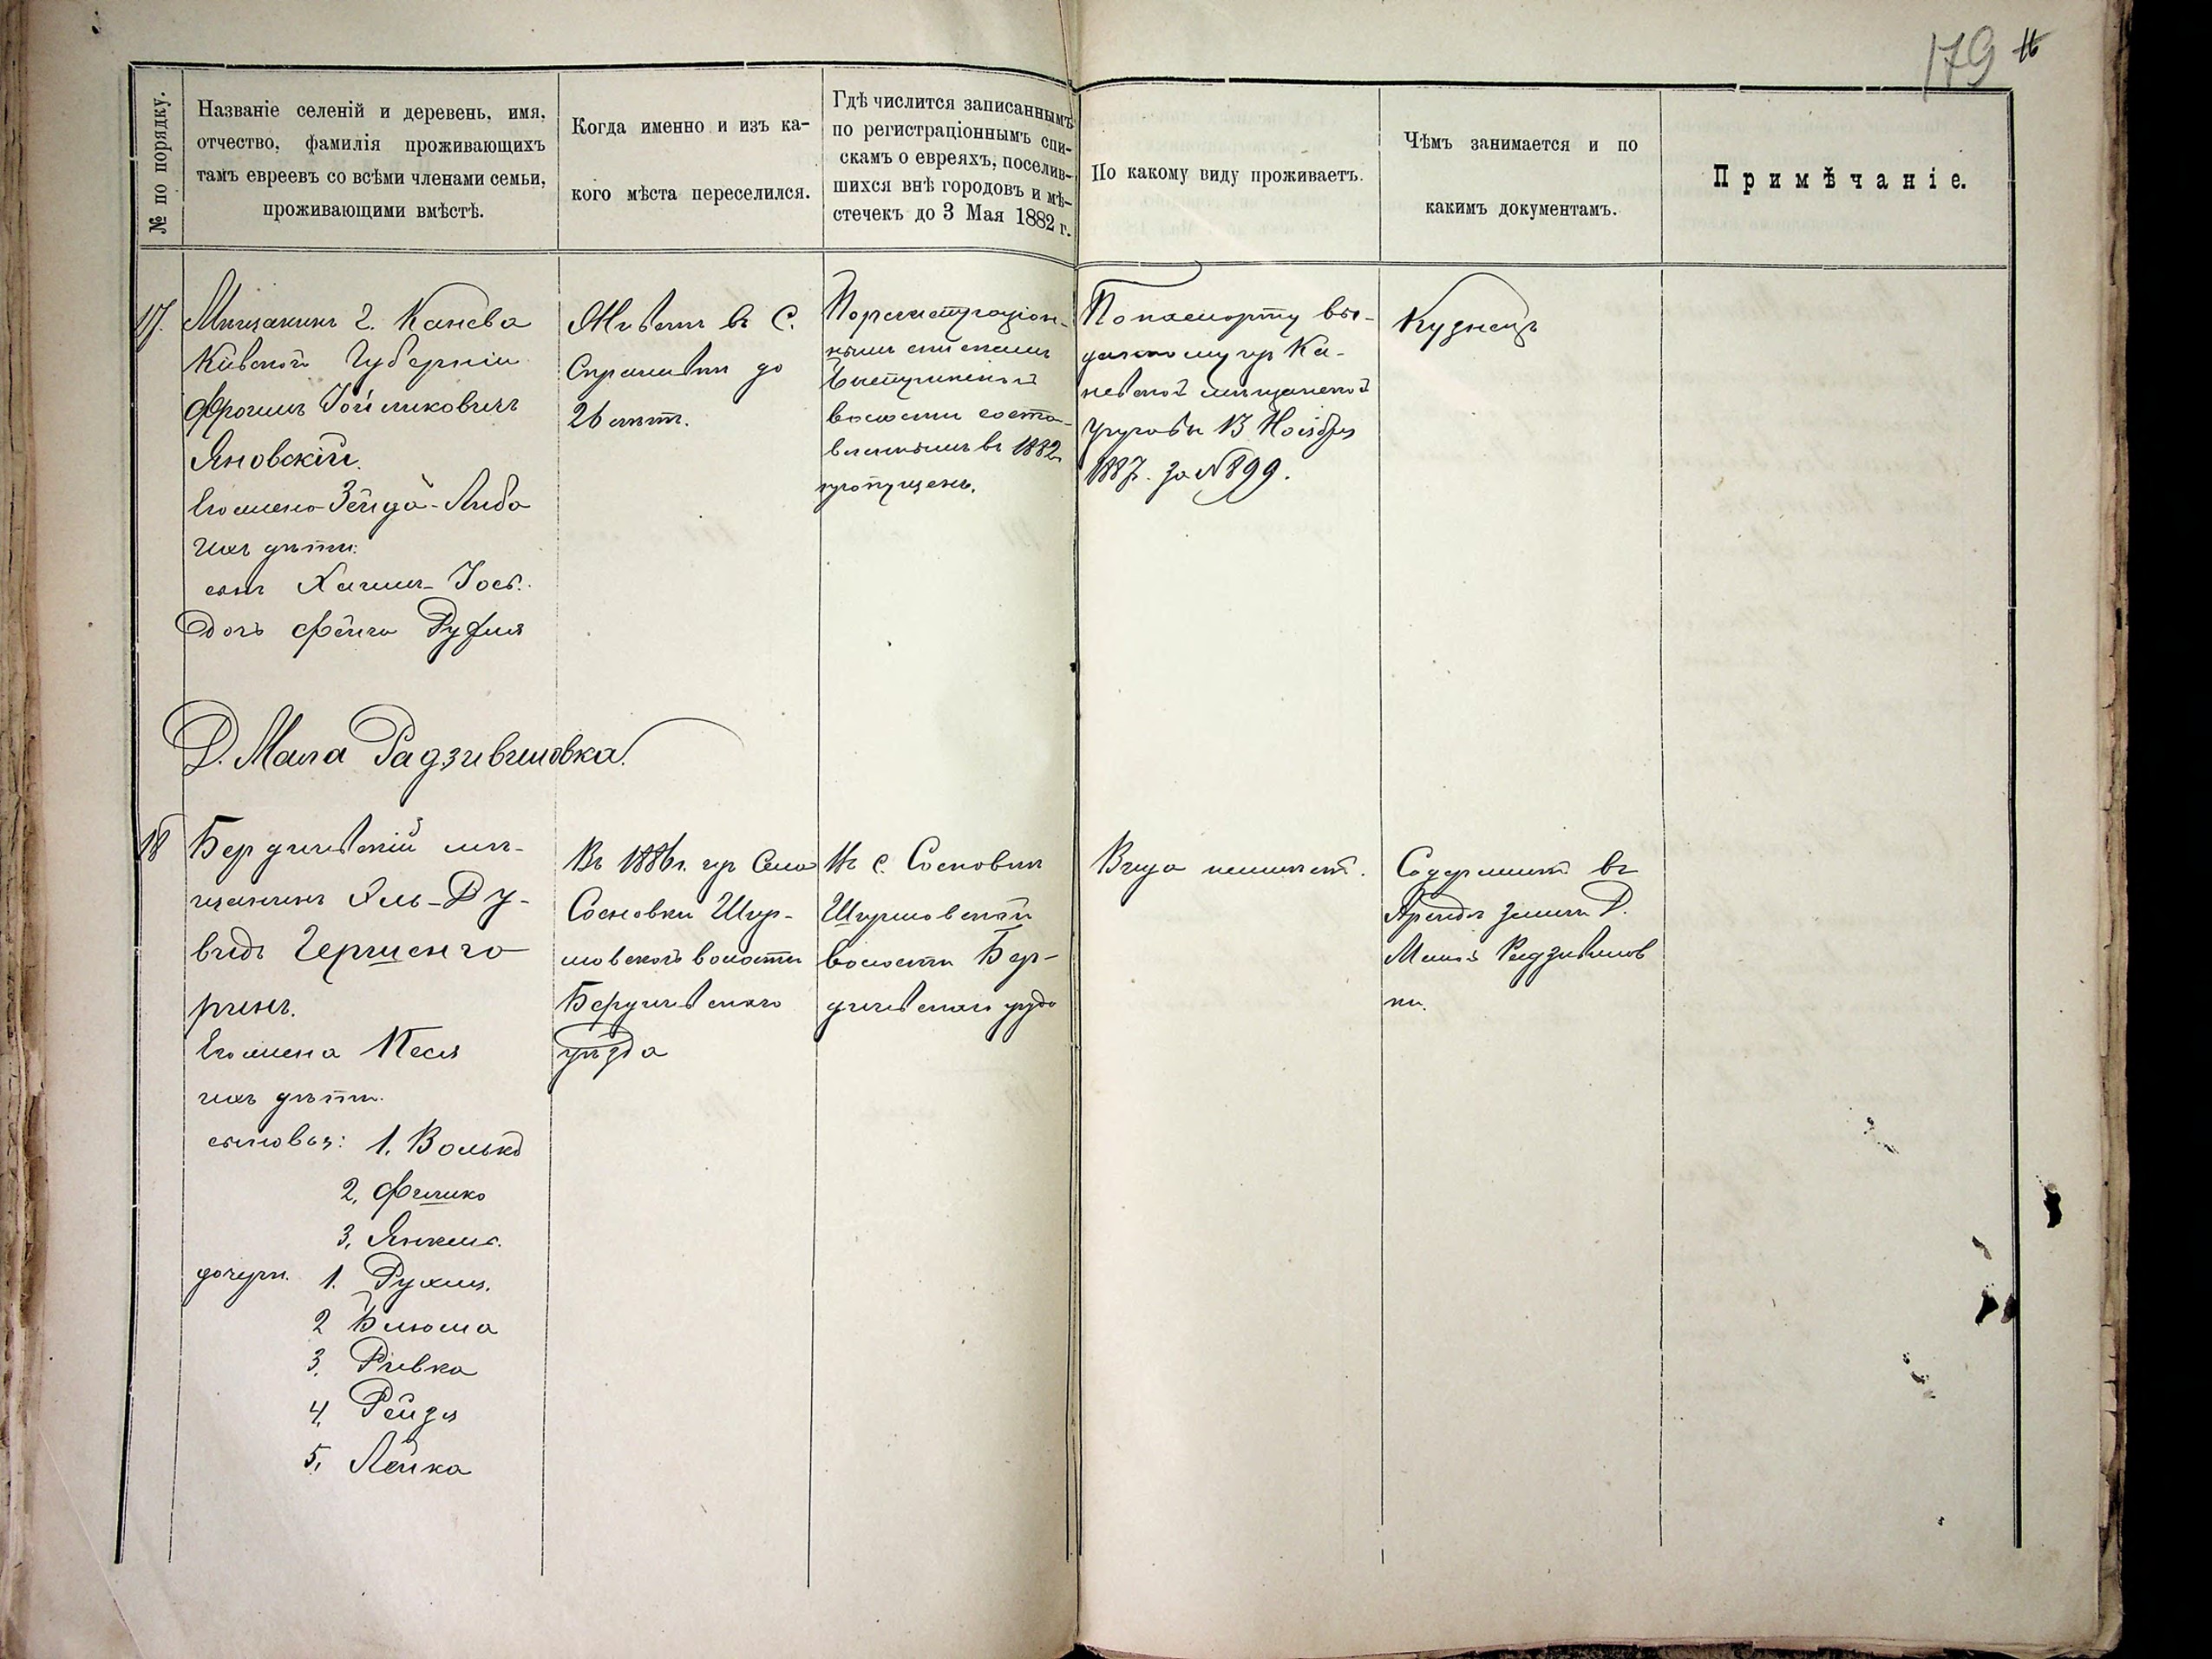 179
№ по порядку.
Названіе селеній и деревень, имя,
отчество, фамилія проживающихъ
тамъ евреевъ со всѣми членами семьи,
проживающими вмѣстѣ.
Когда именно и изъ ка-
кого мѣста переселился.
Гдѣ числится записаннымъ
по регистраціоннымъ спи-
скамъ о евреяхъ, поселив-
шихся внѣ городовъ и мѣ-
стечекъ до 3 Мая 1882 г.
По какому виду проживаетъ.
Чѣмъ занимается и по
какимъ документамъ.
Примѣчаніе.
17.
Мѣщанинъ г. Канева
Кіевской Губерніи
Фроимъ
Яновскій.
Его жена Зейда-Либа
Ихъ дѣти:
сынъ Хаимъ-Іос.
Дочь Фейга Руфля
Живетъ въ С.
до
26 лѣтъ.
По регистраціон-
нымъ спискамъ
волости соста-
вленнымъ въ 1882
пропущенъ.
По паспорту вы-
данному изъ Ка-
невской мѣщанской
Управы 13 Ноября
1887. за № 899.
Кузнецъ
Д. Мала Радзивиловка.
18
Бердичевскій мѣ-
щанинъ Эль-Ру-
видъ Гершенго
ринъ.
Его жена Песя
ихъ дѣти.
сыновья: 1. Волько
2. Фишко
3. Янкель.
дочери. 1. Рухля.
2 Блюма
3. Ривка
4. Рейзя
5. Лейка
Въ 1886г. изъ Села
Сосновки
волости
Бердичевскаго
уѣзда
Въ с. Сосновки
волости Бер-
дичевскаго уѣзда
Вида неимѣетъ.
Содержитъ въ
Арендѣ земли Д.
Малой Радзивилов
ки.